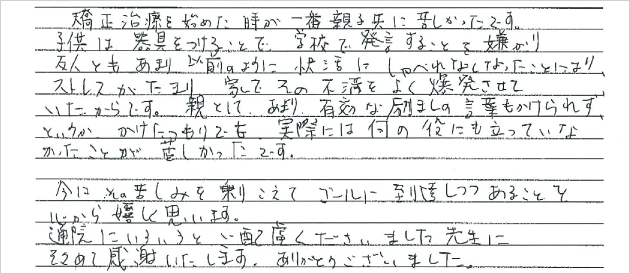 矯正治療を始めた時が一番親子共に苦しかったです。
子供は器具をつけることで、学校で発言することを嫌がり
友人ともあまり以前のように快活にしゃべれなくなったことにより、
ストレスがたまり、家でその不満をよく爆発させて
いたからです。親として、あまり有効な励ましの言葉もかけられず、
というか、かけたつもりでも、実際には何の役にも立っていな
かったことが苦しかったです。
今はその苦しみを乗りこえてゴールに到達しつつあることを
心から嬉しく思います。
通院にいろいろとご配慮くださいました先生に
改めて感謝いたします。ありがとうございました。